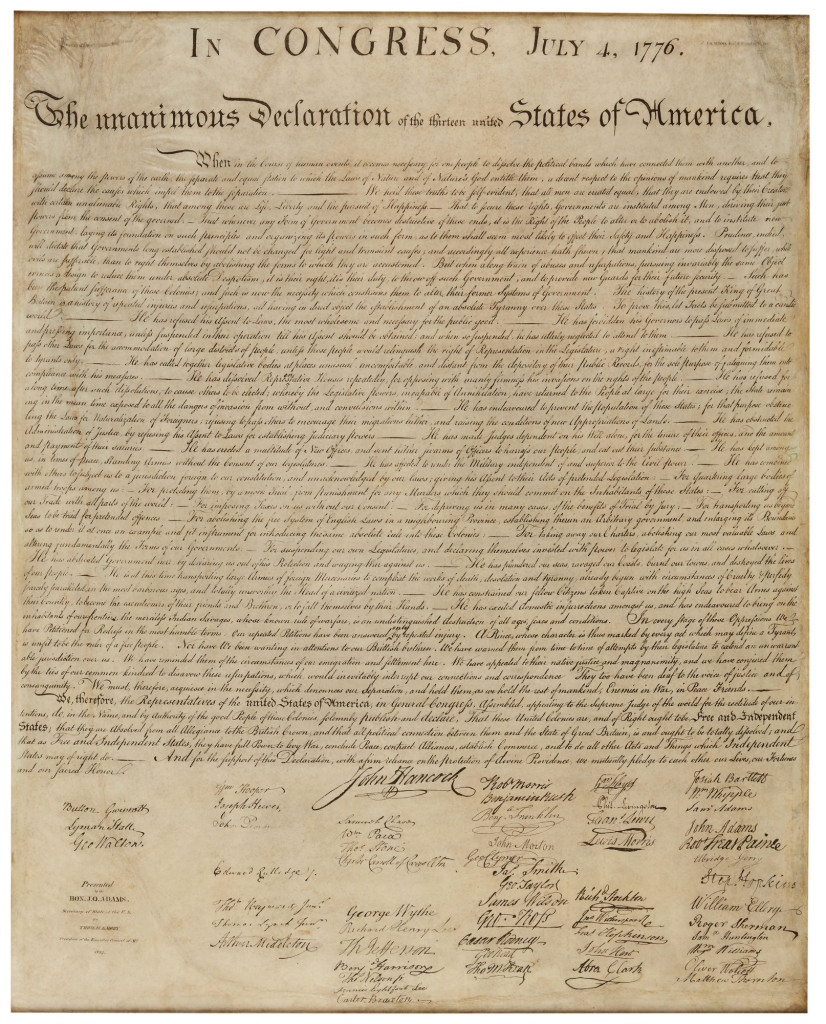 IN CONGRESS, JULY 4, 1776.
The unanimous Declaration of the thirteen united States of America,
When in the Course of human events, it becomes necessary for one people to dissolve the political bands which have connected them with another, and to
assume among the powers of the earth, the separate and equal station to which the Laws of Nature and of Nature's God entitle them, a decent respect to the opinions of mankind requires that they
should declare the causes which impel them to the separation. — We hold these truths to be self-evident, that all men are created equal, that they are endowed by their Creator
with certain unalienable Rights, that among these are Life, Liberty and the pursuit of Happiness. — That to secure these rights, Governments are instituted among Men, deriving their just
powers from the consent of the governed, — That whenever any Form of Government becomes destructive of these ends, it is the Right of the People to alter or to abolish it, and to institute new
Government, laying its foundation on such principles and organizing its powers in such form, as to them shall seem most likely to effect their Safety and Happiness. Prudence, indeed,
will dictate that Governments long established should not be changed for light and transient causes; and accordingly all experience hath shewn, that mankind are more disposed to suffer, while
evils are sufferable, than to right themselves by abolishing the forms to which they are accustomed. But when a long train of abuses and usurpations, pursuing invariably the same Object
evinces a design to reduce them under absolute Despotism, it is their right, it is their duty, to throw off such Government, and to provide new Guards for their future security. — Such has
been the patient sufferance of these Colonies; and such is now the necessity which constrains them to alter their former Systems of Government. The history of the present King of Great
Britain is a history of repeated injuries and usurpations, all having in direct object the establishment of an absolute Tyranny over these States. To prove this, let Facts be submitted to a candid
world. — He has refused his Assent to Laws, the most wholesome and necessary for the public good. — He has forbidden his Governors to pass Laws of immediate
and pressing importance, unless suspended in their operation till his Assent should be obtained; and when so suspended, he has utterly neglected to attend to them. — He has refused to
pass other Laws for the accommodation of large districts of people, unless those people would relinquish the right of Representation in the Legislature, a right inestimable to them and formidable
to tyrants only. — He has called together legislative bodies at places unusual, uncomfortable, and distant from the depository of their Public Records, for the sole purpose of fatiguing them into
compliance with his measures. — He has dissolved Representative Houses repeatedly, for opposing with manly firmness his invasions on the rights of the people. — He has refused for
a long time, after such dissolutions, to cause others to be elected; whereby the Legislative powers, incapable of Annihilation, have returned to the People at large for their exercise; the State remain
ing in the mean time exposed to all the dangers of invasion from without, and convulsions within. — He has endeavoured to prevent the population of these States; for that purpose obstruc
ting the Laws for Naturalization of Foreigners; refusing to pass others to encourage their migrations hither, and raising the conditions of new Appropriations of Lands. — He has obstructed the
Administration of Justice, by refusing his Assent to Laws for establishing Judiciary powers. — He has made Judges dependent on his Will alone, for the tenure of their offices, and the amount
and payment of their salaries. — He has erected a multitude of New Offices, and sent hither swarms of Officers to harrass our People, and eat out their substance. — He has kept among
us, in times of peace, Standing Armies without the Consent of our legislatures. — He has affected to render the Military independent of and superior to the Civil power. — He has combined
with others to subject us to a jurisdiction foreign to our constitution, and unacknowledged by our laws; giving his Assent to their Acts of pretended Legislation: — For Quartering large bodies of
armed troops among us: — For protecting them, by a mock Trial, from punishment for any Murders which they should commit on the Inhabitants of these States: — For cutting off
our Trade with all parts of the world: — For imposing Taxes on us without our Consent: — For depriving us in many cases, of the benefits of Trial by Jury: — For transporting us beyond
Seas to be tried for pretended offences — For abolishing the free System of English Laws in a neighbouring Province, establishing therein an Arbitrary government, and enlarging its Boundaries
so as to render it at once an example and fit instrument for introducing the same absolute rule into these Colonies: — For taking away our Charters, abolishing our most valuable Laws, and
altering fundamentally the Forms of our Governments: — For suspending our own Legislatures, and declaring themselves invested with power to legislate for us in all cases whatsoever. —
He has abdicated Government here, by declaring us out of his Protection and waging War against us. — He has plundered our seas, ravaged our Coasts, burnt our towns, and destroyed the lives
of our people. — He is at this time transporting large Armies of foreign Mercenaries to compleat the works of death, desolation and tyranny, already begun with circumstances of Cruelty & perfidy
scarcely paralleled in the most barbarous ages, and totally unworthy the Head of a civilized nation. — He has constrained our fellow Citizens taken Captive on the high Seas to bear Arms against
their Country, to become the executioners of their friends and Brethren, or to fall themselves by their Hands. — He has excited domestic insurrections amongst us, and has endeavoured to bring on the
inhabitants of our frontiers, the merciless Indian Savages, whose known rule of warfare, is an undistinguished destruction of all ages, sexes and conditions. In every stage of these Oppressions We
have Petitioned for Redress in the most humble terms: Our repeated Petitions have been answered only by repeated injury. A Prince, whose character is thus marked by every act which may define a Tyrant,
is unfit to be the ruler of a free people. Nor have We been wanting in attentions to our Brittish brethren. We have warned them from time to time of attempts by their legislature to extend an unwarrant
able jurisdiction over us. We have reminded them of the circumstances of our emigration and settlement here. We have appealed to their native justice and magnanimity, and we have conjured them
by the ties of our common kindred to disavow these usurpations, which, would inevitably interrupt our connections and correspondence. They too have been deaf to the voice of justice and of
consanguinity. We must, therefore, acquiesce in the necessity, which denounces our Separation, and hold them, as we hold the rest of mankind, Enemies in War, in Peace Friends. —
We, therefore, the Representatives of the united States of America, in General Congress, Assembled, appealing to the Supreme Judge of the world for the rectitude of our in
tentions, do, in the Name, and by Authority of the good People of these Colonies, solemnly publish and declare, That these United Colonies are, and of Right ought to be Free and Independent
States; that they are Absolved from all Allegiance to the British Crown, and that all political connection between them and the State of Great Britain, is and ought to be totally dissolved; and
that as Free and Independent States, they have full Power to levy War, conclude Peace, contract Alliances, establish Commerce, and to do all other Acts and Things which Independent
States may of right do. — And for the support of this Declaration, with a firm reliance on the protection of divine Providence, we mutually pledge to each other our Lives, our Fortunes
and our sacred Honor.
Button Gwinnett
Lyman Hall
Geo Walton.
Wm Hooper
Joseph Hewes,
John Penn
Edward Rutledge /.
Thos Heyward Junr.
Thomas Lynch Junr.
Arthur Middleton
John Hancock
Samuel Chase
Wm Paca
Thos Stone
Charles Carroll of Carrollton
George Wythe
Richard Henry Lee
Th Jefferson
Benj Harrison
Thos Nelson jr.
Francis Lightfoot Lee
Carter Braxton
Robt Morris
Benjamin Rush
Benj Franklin
John Morton
Geo Clymer
Jas Smith.
Geo Taylor
James Wilson
Geo. Ross
Caesar Rodney
Geo Read
Tho M:Kean
Wm Floyd
Phil. Livingston
Frans Lewis
Lewis Morris
Richd Stockton
Jno Witherspoon
Fras Hopkinson
John Hart
Abra Clark
Josiah Bartlett
Wm Whipple
Saml Adams
John Adams
Robt Treat Paine
Elbridge Gerry
Step. Hopkins
William Ellery
Roger Sherman
Saml Huntington
Wm Williams
Oliver Wolcott
Matthew Thornton
Presented
by the
HON. J.Q. ADAMS,
Secretary of State of the U.S.
to